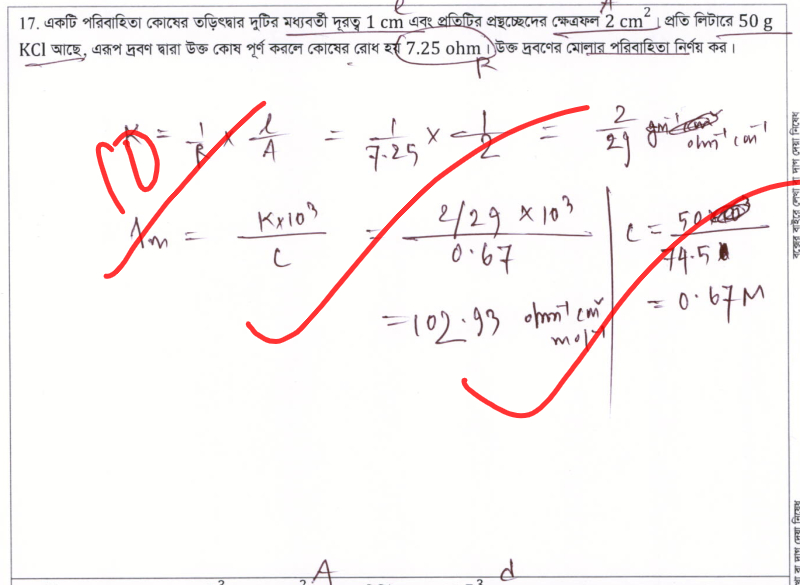 l A
17. একটি পরিবাহিতা কোষের তড়িৎদ্বার দুটির মধ্যবর্তী দূরত্ব 1 cm এবং প্রতিটির প্রস্থচ্ছেদের ক্ষেত্রফল 2 cm²। প্রতি লিটারে 50 g
KCl আছে, এরূপ দ্রবণ দ্বারা উক্ত কোষ পূর্ণ করলে কোষের রোধ হয় 7.25 ohm। উক্ত দ্রবণের মোলার পরিবাহিতা নির্ণয় কর।
R
K = 1/R × l/A = 1/7.25 × 1/2 = 2/29 ohm⁻¹ cm⁻¹
Λm = K×10³/C = 2/29 ×10³/0.67
C = 50/74.5
= 0.67 M
=102.93 ohm⁻¹ cm² mol⁻¹
A d